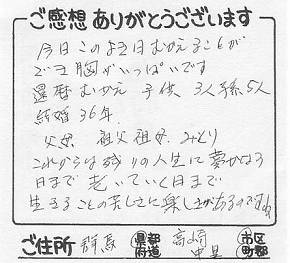 ご感想ありがとうございます
今日このよき日むかえることが
でき胸がいっぱいです
還暦むかえ 子供 3人孫5人
結婚36年
父母 祖父祖母 みとり
これからは残りの人生に夢
日まで老いていく日まで
生きることの苦しさに楽しさがあるのですね
ご住所 群馬 都道府県 高崎 市区町郡
中里